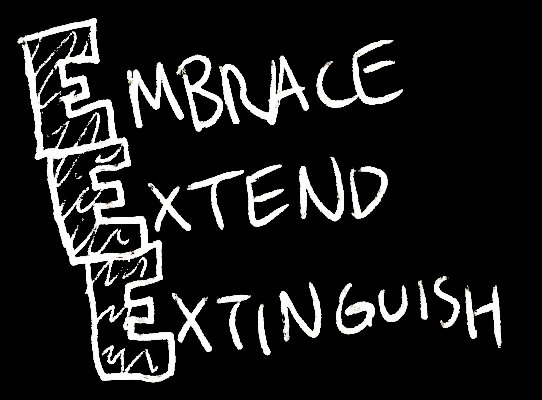 EMBRACE
EXTEND
EXTINGUISH